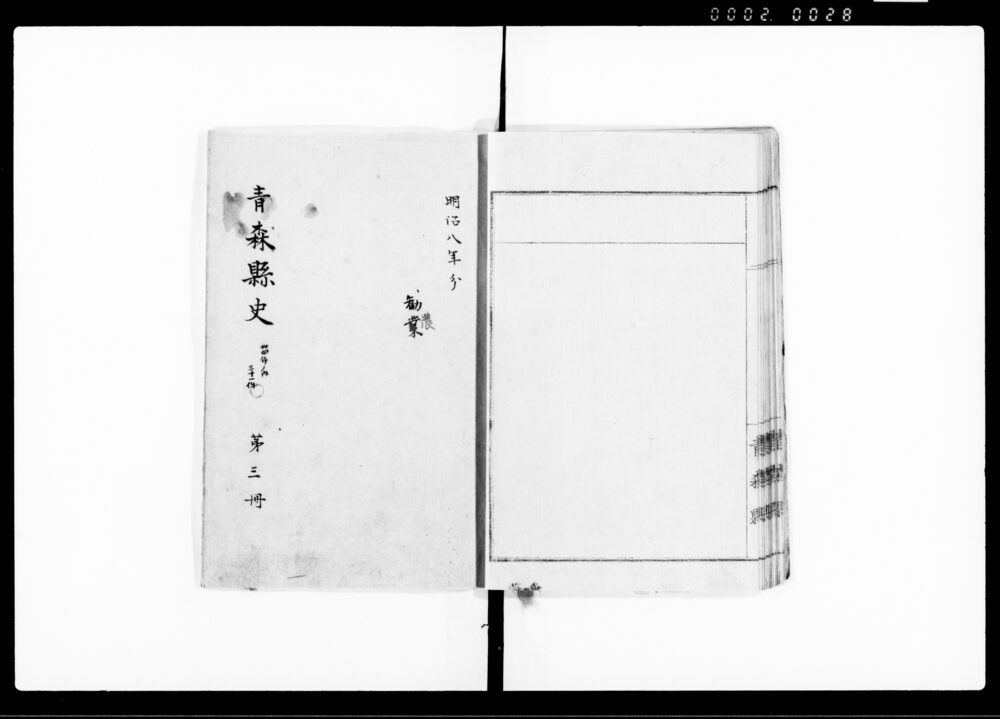 0002 0028
青森縣
明治八年分
勧業
農
青森縣史
第三冊